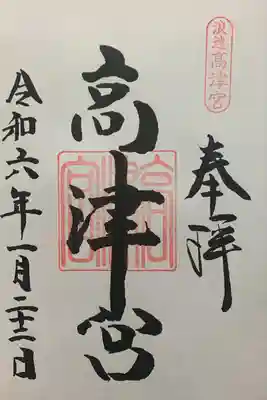 浪速高津宮
奉拝
高津宮
令和六年一月二十二日